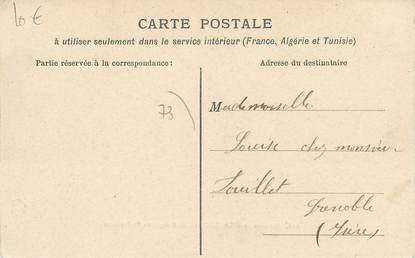 10 €
CARTE POSTALE
à utiliser seulement dans le service intérieur (France, Algérie et Tunisie)
Partie réservée à la correspondance :
Adresse du destinataire
73
Mademoiselle
Louise chez monsieur
Grenoble
(Isère)